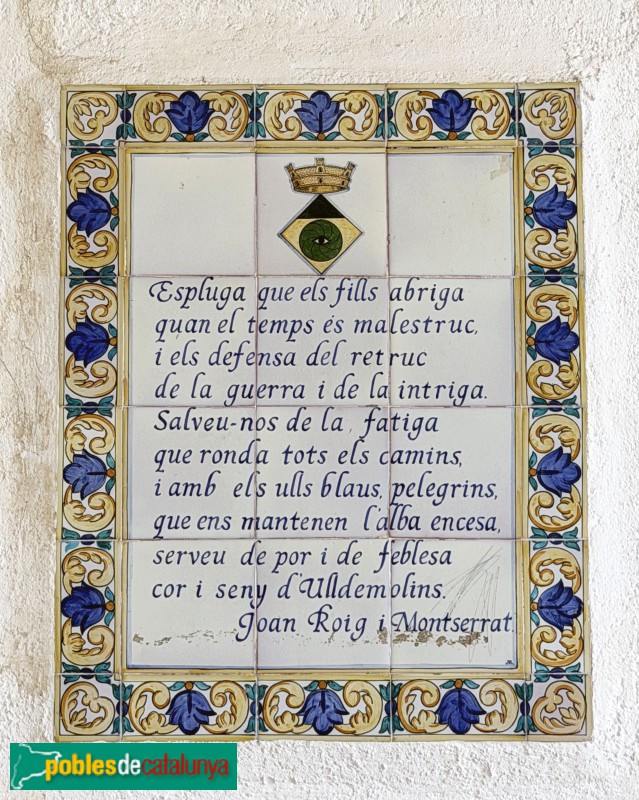 Espluga que els fills abriga
quan el temps és malestruc,
i els defensa del retruc
de la guerra i de la intriga.
Salveu-nos de la, fatiga
que ronda tots els camins,
i amb els ulls blaus, pelegrins,
que ens mantenen l'alba encesa,
serveu de por i de feblesa
cor i seny d'Ulldemolins.
Joan Roig i Montserrat
poblesdecatalunya